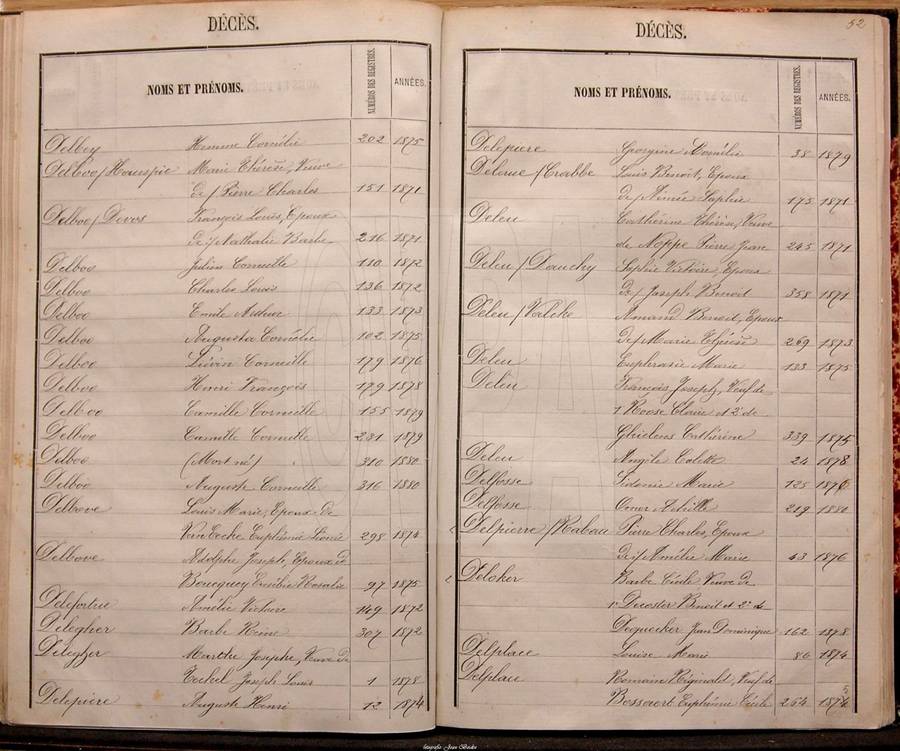 DÉCÈS.
NOMS ET PRÉNOMS. NUMÉROS DES REGISTRES. ANNÉES.
Delbey Hemme Cornélie 202 1875
Delboo/Houspie Marie Thérèse, Veuve
de/ Pierre Charles 151 1871
Delboo/Devos François Louis, Epoux
de/ Nathalie Barbe 216 1871
Delboo Julien Corneille 110 1872
Delboo Charles Louis 136 1872
Delboo Emile 133 1873
Delboo Augusta Cornélie 102 1875
Delboo Liévin Corneille 179 1876
Delboo Henri François 179 1878
Delboo Camille Corneille 155 1879
Delboo Camille Corneille 231 1879
Delboo (Mort né) 310 1880
Delboo Auguste Corneille 316 1880
Delbove Louis Marie, Epoux de
Van Eecke Euphémie 298 1874
Delbove Adolphe Joseph, Epoux de
Rosalie 97 1875
Delefortrie Amélie Victoire 149 1872
Delegher Barbe Reine 307 1872
Delegher Marthe Josephe, Veuve de
Joseph Louis 1 1878
Delepière August Henri 12 1874
DÉCÈS. 52
NOMS ET PRÉNOMS. NUMÉROS DES REGISTRES. ANNÉES.
Delepiere Georgine 38 1879
Delerue/Crabbe Louis Benoit, Epoux
de/ Sophie 175 1871
Deleu Cathérine Thérèse, Veuve
de Noppe Pierre Jean 245 1871
Deleu/Dauchy Sophie Victoire, Epoux
de/ Joseph Benoit 358 1871
Deleu/Valcke Amand Benoit, Epoux
de/ Marie Thérèse 269 1873
Deleu Euphrasie Marie 133 1875
Deleu François Joseph, Veuf de
1° Roose Claire et 2° de
Ghielens Cathérine 339 1875
Deleu Angèle Colette 24 1878
Delfosse Sidonie Marie 125 1876
Delfosse Omer Achille 219 1880
Delpierre/Rabau Pierre Charles, Epoux
de/ Amélie Marie 43 1876
Deloker Barbe Cécile Veuve de
1° Decoster Benoit et 2° de
Dequecker Jean Dominique 162 1878
Delplace Louise Marie 86 1874
Delplace Romain Reginald, Veuf de
Bossaert Euphémie Cécile 264 1875
fotografie Jean Beckx